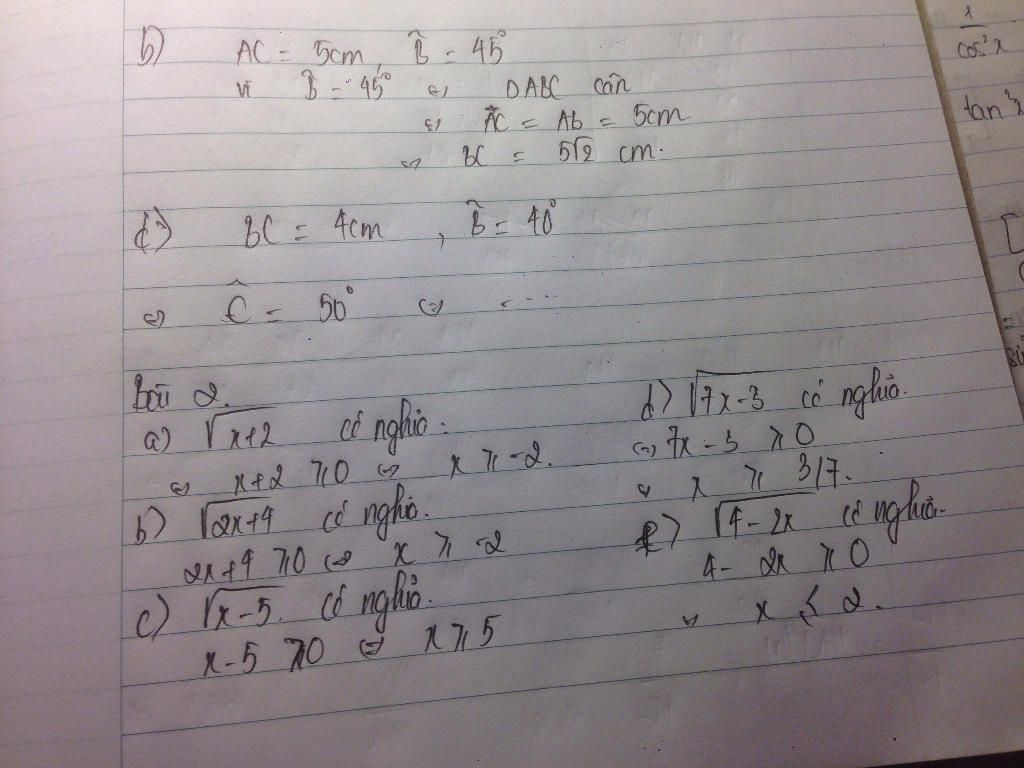 b) AC = 5cm, B̂ = 45°
vì B̂ = 45° ⇔ DABC cân
⇔ AC = Ab = 5cm
⇒ BC = 5√2 cm.
d) BC = 4cm, B̂ = 40°
⇔ Ĉ = 50° ⇔ ....
bài 2.
a) √x+2 có nghĩa.
⇔ x+2 ≥ 0 ⇔ x ≥ -2.
b) √2x+4 có nghĩa.
2x+4 ≥ 0 ⇔ x ≥ -2
c) √x-5. có nghĩa.
x-5 ≥ 0 ⇔ x ≥ 5
d) √7x-3 có nghĩa.
⇔ 7x-3 ≥ 0
⇔ x ≥ 3/7.
√4-2x có nghĩa.
4- 2x ≥ 0
⇔ x ≤ 2.
1
cos²x